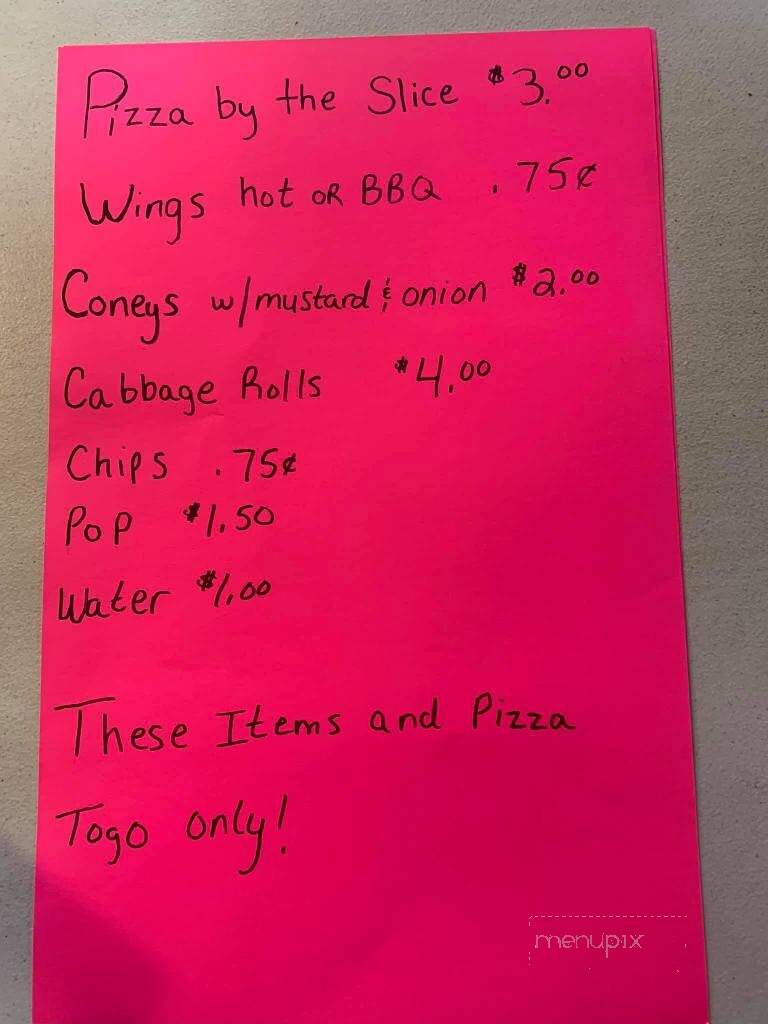 Pizza by the Slice $3.00
Wings hot OR BBQ .75¢
Coneys w/mustard & onion $2.00
Cabbage Rolls $4.00
Chips .75¢
Pop $1.50
Water $1.00
These Items and Pizza
Togo only!
menupix